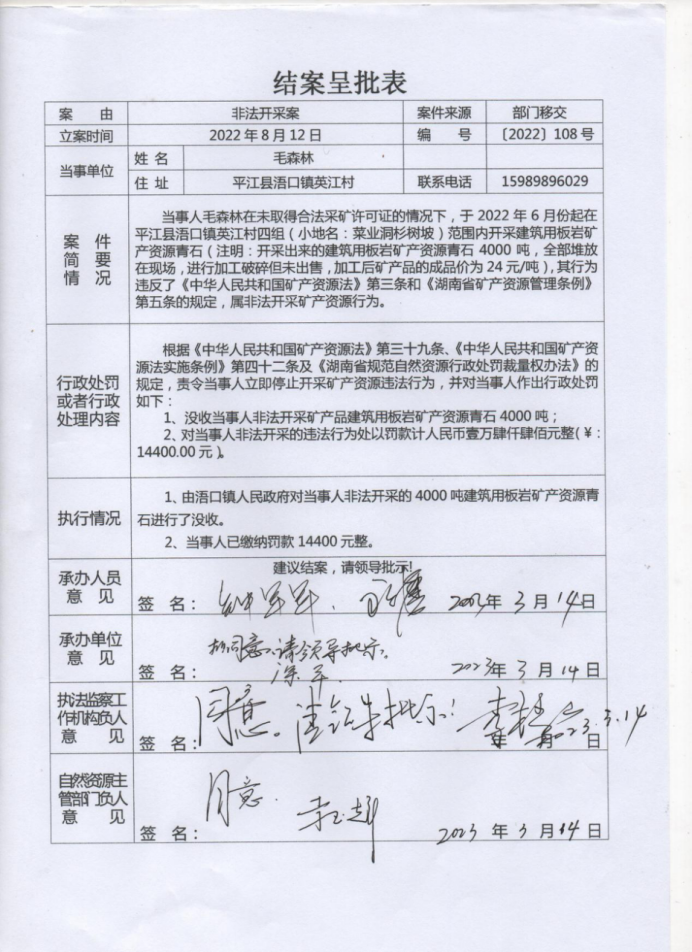 结案呈批表
案 由 非法开采案 案件来源 部门移交
立案时间 2022年8月12日 编 号 〔2022〕108号
当事单位 姓 名 毛森林
住 址 平江县浯口镇英江村 联系电话 15989896029
案 件
简 要
情 况
当事人毛森林在未取得合法采矿许可证的情况下，于2022年6月份起在
平江县浯口镇英江村四组（小地名：菜业洞杉树坡）范围内开采建筑用板岩矿
产资源青石（注明：开采出来的建筑用板岩矿产资源青石4000吨，全部堆放
在现场，进行加工破碎但未出售，加工后矿产品的成品价为24元/吨），其行为
违反了《中华人民共和国矿产资源法》第三条和《湖南省矿产资源管理条例》
第五条的规定，属非法开采矿产资源行为。
行政处罚
或者行政
处理内容
根据《中华人民共和国矿产资源法》第三十九条、《中华人民共和国矿产资
源法实施条例》第四十二条及《湖南省规范自然资源行政处罚裁量权办法》的
规定，责令当事人立即停止开采矿产资源违法行为，并对当事人作出行政处罚
如下：
1、没收当事人非法开采矿产品建筑用板岩矿产资源青石4000吨；
2、对当事人非法开采的违法行为处以罚款计人民币壹万肆仟肆佰元整（￥：
14400.00元）。
执行情况
1、由浯口镇人民政府对当事人非法开采的4000吨建筑用板岩矿产资源青
石进行了没收。
2、当事人已缴纳罚款14400元整。
承办人员
意 见
建议结案，请领导批示！
签 名： 2023年3月14日
承办单位
意 见
同意，请领导批示。
签 名： 2023年3月14日
执法监察工
作机构负人
意 见
同意。请 批示！
签 名： 年 月 日 2023.3.14
自然资源主
管部门负人
意 见
同意.
签 名： 2023年3月14日